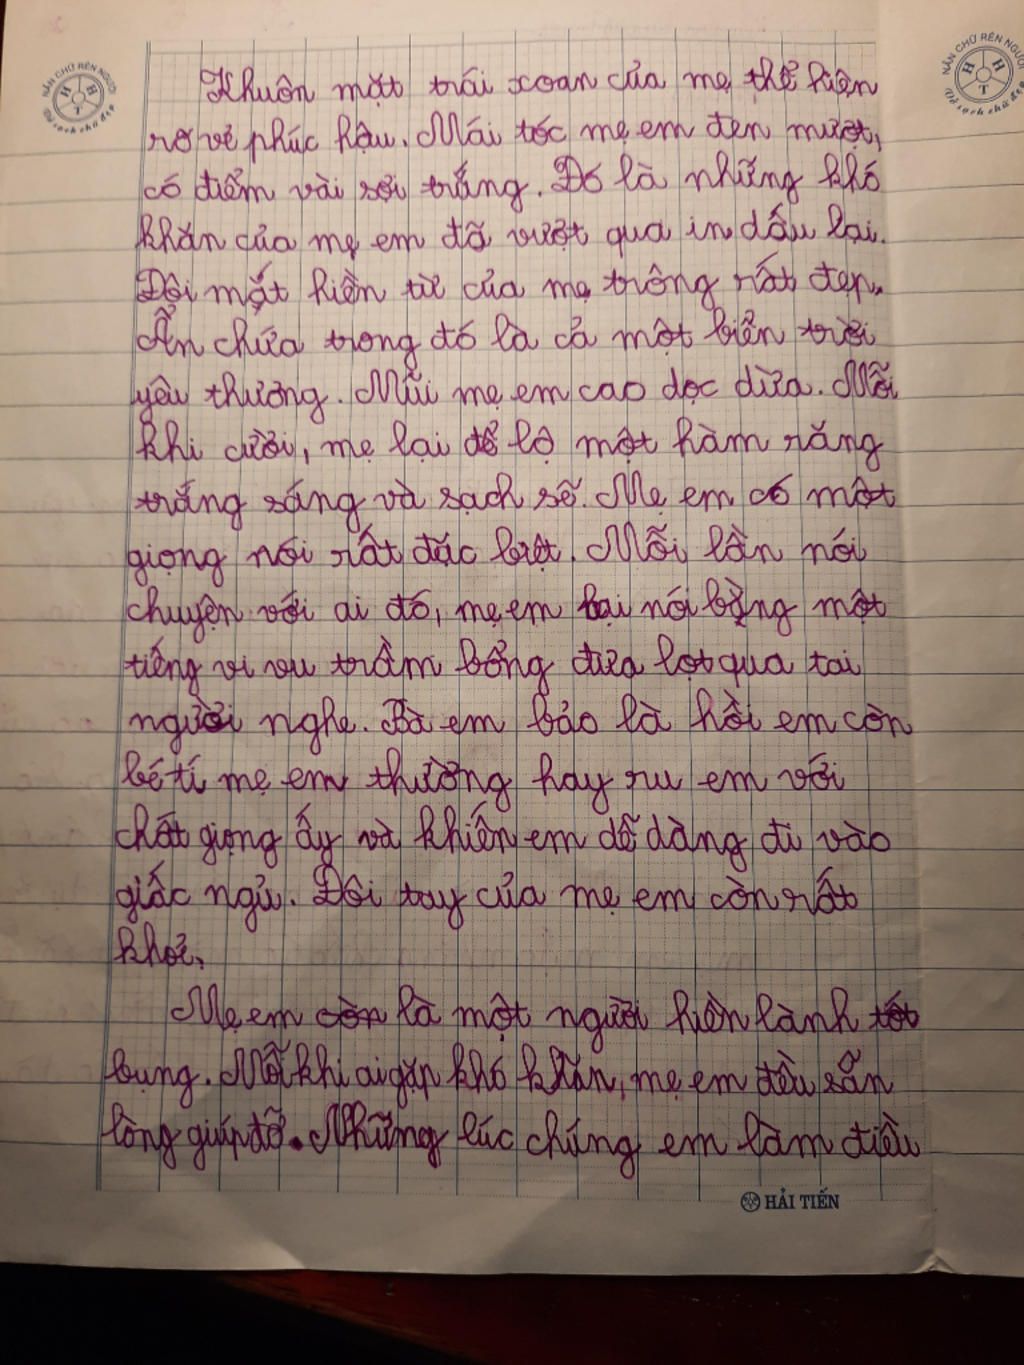 NẮN CHỮ RÈN NGƯỜI
H H T
Vở sạch chữ đẹp
NẮN CHỮ RÈN NGƯỜI
H H T
Vở sạch chữ đẹp
Khuôn mặt trái xoan của mẹ thể hiện
rõ vẻ phúc hậu. Mái tóc mẹ em đen mượt,
có điểm vài sợi trắng. Đó là những khó
khăn của mẹ em đã vượt qua in dấu lại.
Đôi mắt hiền từ của mẹ trông rất đẹp.
Ẩn chứa trong đó là cả một biển trời
yêu thương. Mũi mẹ em cao dọc dừa. Mỗi
khi cười, mẹ lại để lộ một hàm răng
trắng sáng và sạch sẽ. Mẹ em có một
giọng nói rất đặc biệt. Mỗi lần nói
chuyện với ai đó, mẹ em lại nói bằng một
tiếng vi vu trầm bổng đưa lọt qua tai
người nghe. Bà em bảo là hồi em còn
bé tí mẹ em thường hay ru em với
chất giọng ấy và khiến em dễ dàng đi vào
giấc ngủ. Đôi tay của mẹ em còn rất
khoẻ.
Mẹ em còn là một người hiền lành tốt
bụng. Mỗi khi ai gặp khó khăn, mẹ em đều sẵn
lòng giúp đỡ. Những lúc chúng em làm điều
HẢI TIẾN